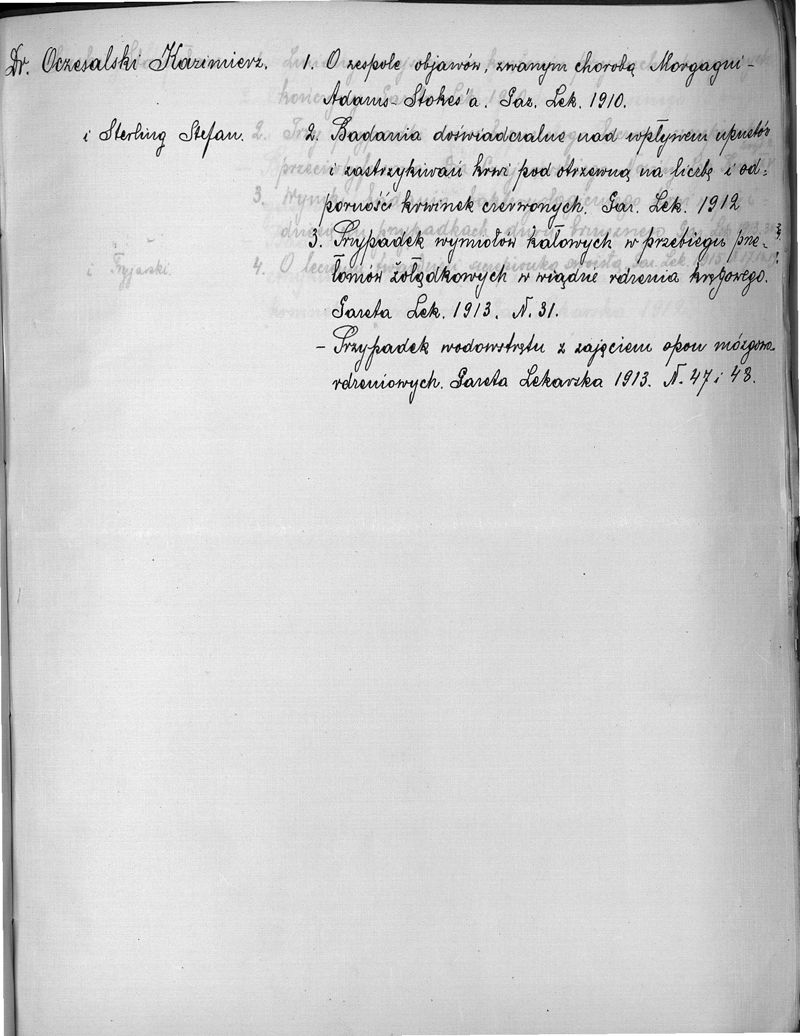 Dr. Oczesalski Kazimierz. 1. O zespole objawów, zwanym chorobą Morgagni-
Adams-Stokes'a. Gaz. Lek. 1910.
i Sterling Stefan. 2. Badania doświadczalne nad wpływem upustów
i zastrzykiwań krwi pod otrzewną na liczbę i od-
porność krwinek czerwonych. Gaz. Lek. 1912
3. Przypadek wymiotów kałowych w przebiegu prze-
łomów żołądkowych w wiądzie rdzenia kręgowego.
Gazeta Lek. 1913. N. 31.
- Przypadek wodowstrętu z zajęciem opon mózgowo-
rdzeniowych. Gazeta Lekarska 1913. N. 47 i 48.